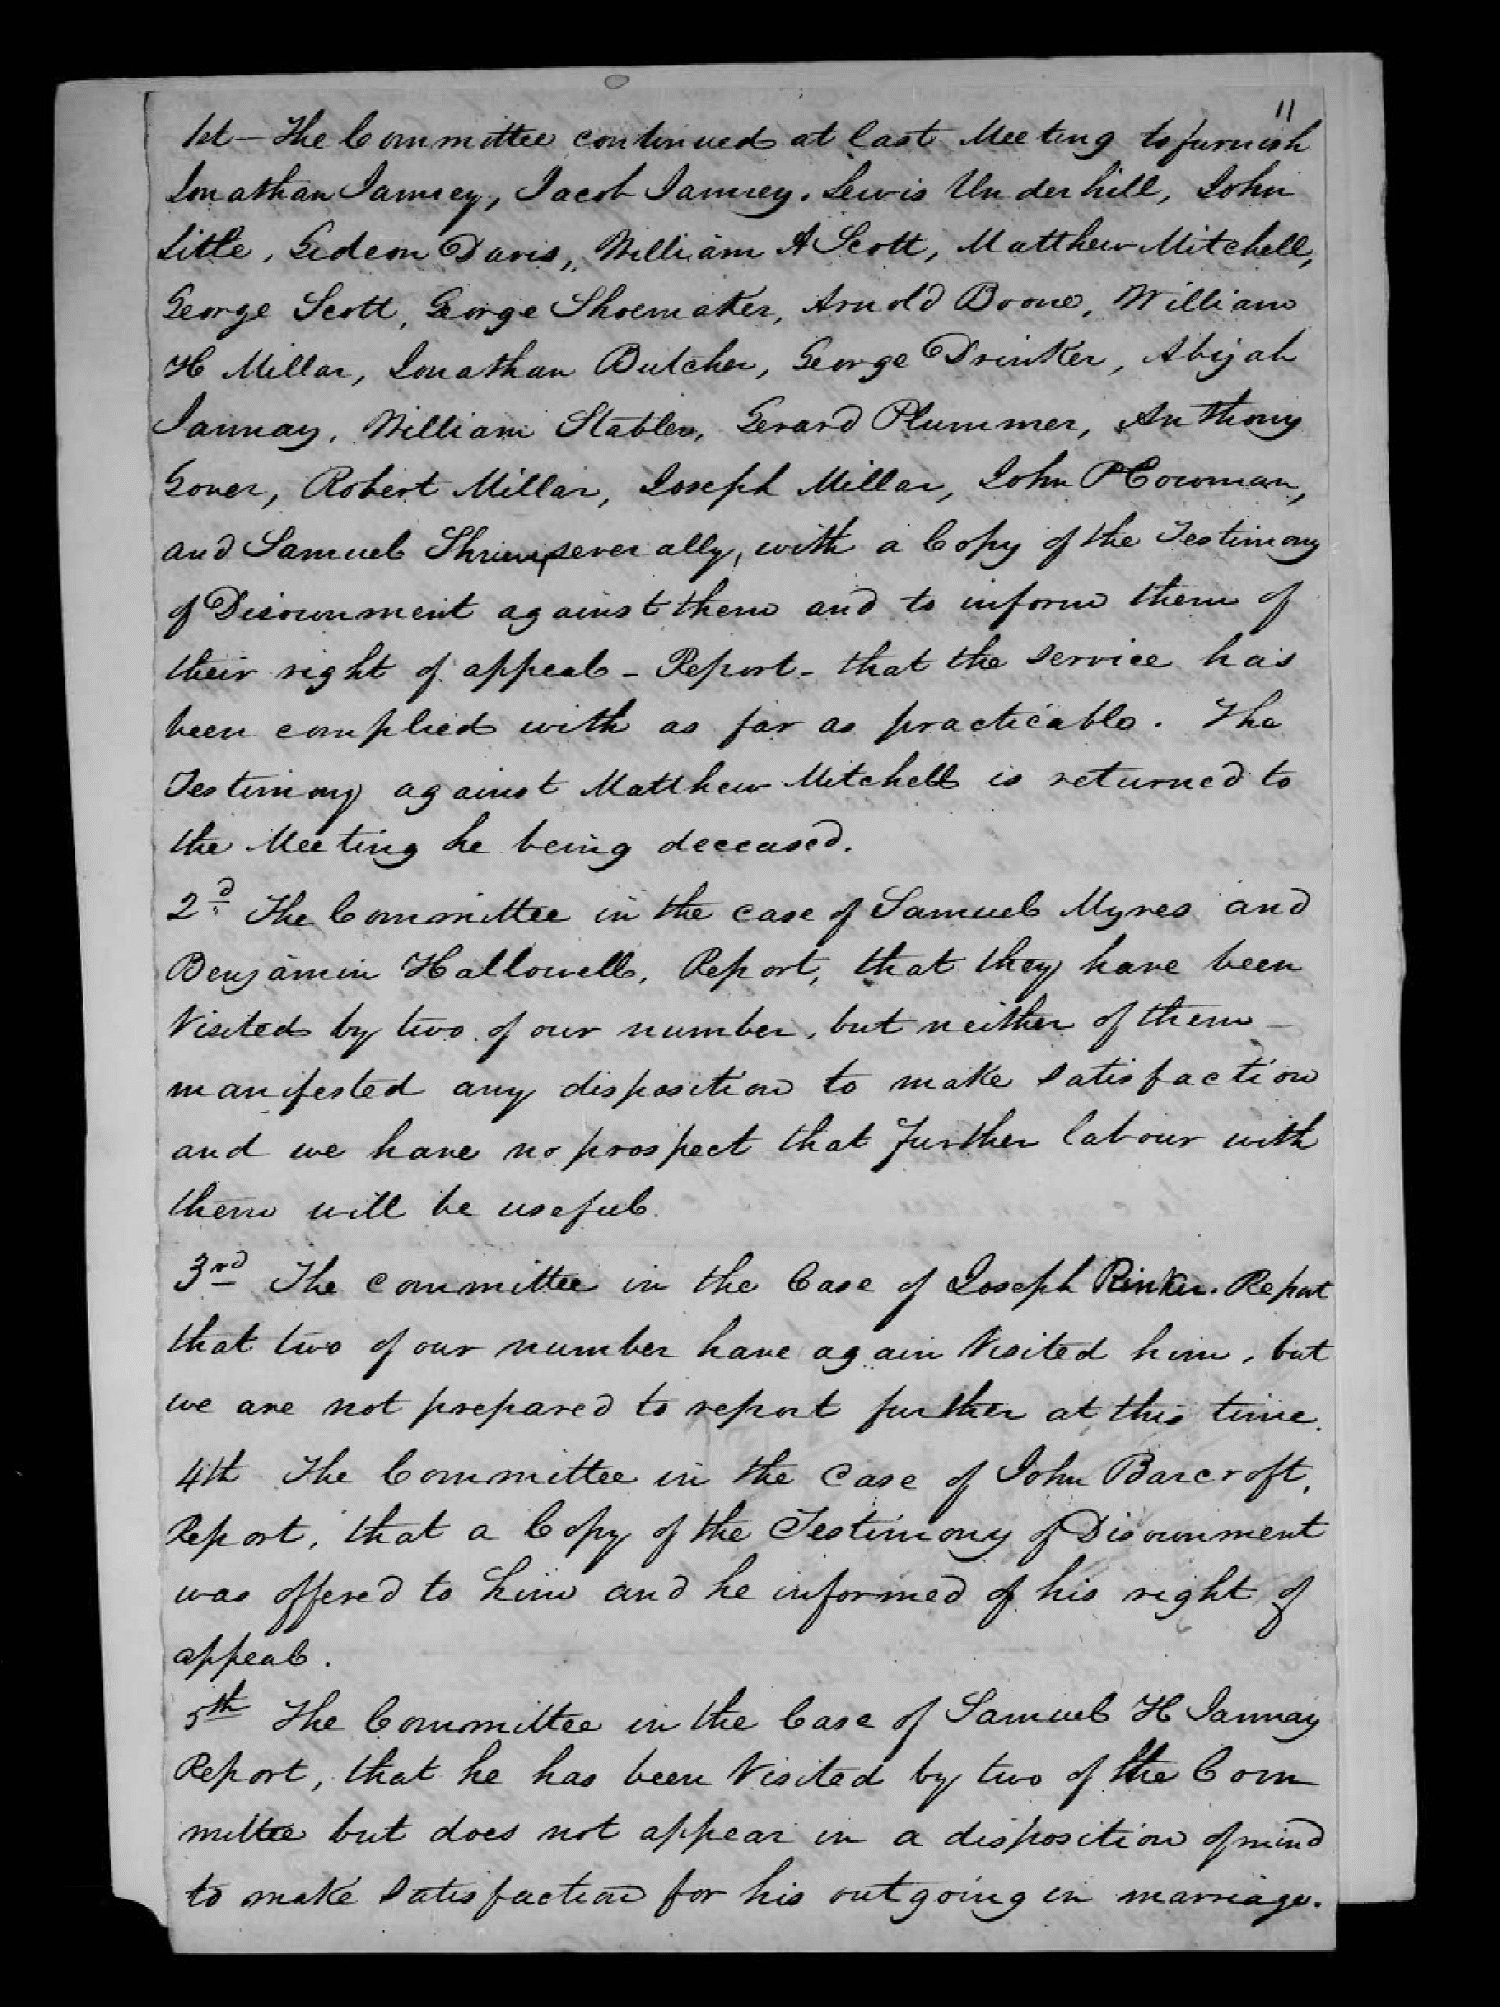 11
1st - The Committee continued at last Meeting to furnish
Jonathan Janney, Jacob Janney, Lewis Underhill, John
Little, Gideon Davis, William A Scott, Matthew Mitchell,
George Scott, George Shoemaker, Arnold Boone, William
H Millar, Jonathan Butcher, George Drinker, Abijah
Jannay, William Stabler, Gerard Plummer, Anthony
Gover, Robert Millar, Joseph Millar, John P Cowman,
and Samuel severally, with a Copy of the Testimony
of Disownment against them and to inform them of
their right of appeal - Report - that the service has
been complied with as far as practicable. The
Testimony against Matthew Mitchell is returned to
the Meeting he being deceased.
2d The Committee in the case of Samuel Myres and
Benjamin Hallowell, Report, that they have been
Visited by two of our number, but neither of them
manifested any disposition to make satisfaction
and we have no prospect that further labour with
them will be useful.
3rd The committee in the Case of Joseph Rinker. Report
that two of our number have again Visited him, but
we are not prepared to report further at this time.
4th The Committee in the Case of John Barcroft,
Report, that a Copy of the Testimony of Disownment
was offered to him and he informed of his right of
appeal.
5th The Committee in the Case of Samuel H Jannay
Report, that he has been Visited by two of the Com
mittee but does not appear in a disposition of mind
to make satisfaction for his outgoing in marriage.